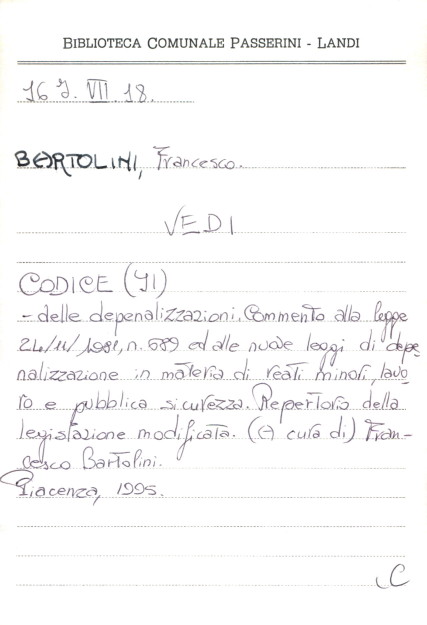 BIBLIOTECA COMUNALE PASSERINI - LANDI
16 J. VII. 18.
BARTOLINI, Francesco.
VEDI
CODICE (Il)
- delle depenalizzazioni. Commento alla legge
24/11/1981, n. 689 ed alle nuove leggi di depe
nalizzazione in materia di reati minori, lavo
ro e pubblica sicurezza. Repertorio della
legislazione modificata. (A cura di) Fran-
cesco Bartolini.
Piacenza, 1995.
C